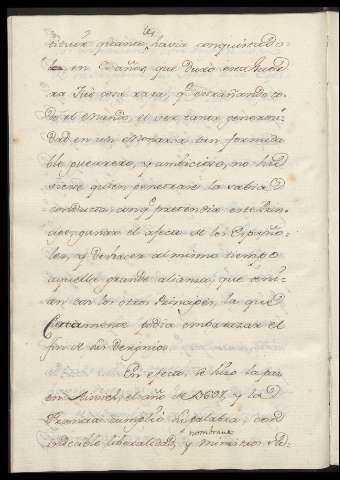 les
tituir quanto havia conquistado
en 8 años, que duró esta Guer
ra. Fue cosa rara, q.e extrañando to
do el Mundo, el ver tanta generosi
dad en un Monarca tan formida
ble guerrero, y ambicioso, no hu
viese quien penetrase la sabia
conducta conq.e pretendia este Prin
cipe, ganar el afecto de los Españo
les, y deshacer al mismo tiempo
aquella grande alianza, que teni
an con los otros Principes, la que
Ciertamente podia embarazar el
fin de sus designios.
En efecto, se hizo la paz
en Risvich, el año de 1697, y la
Francia cumplió su palabra, con
nombrando
indecible liberalidad, y Ministros